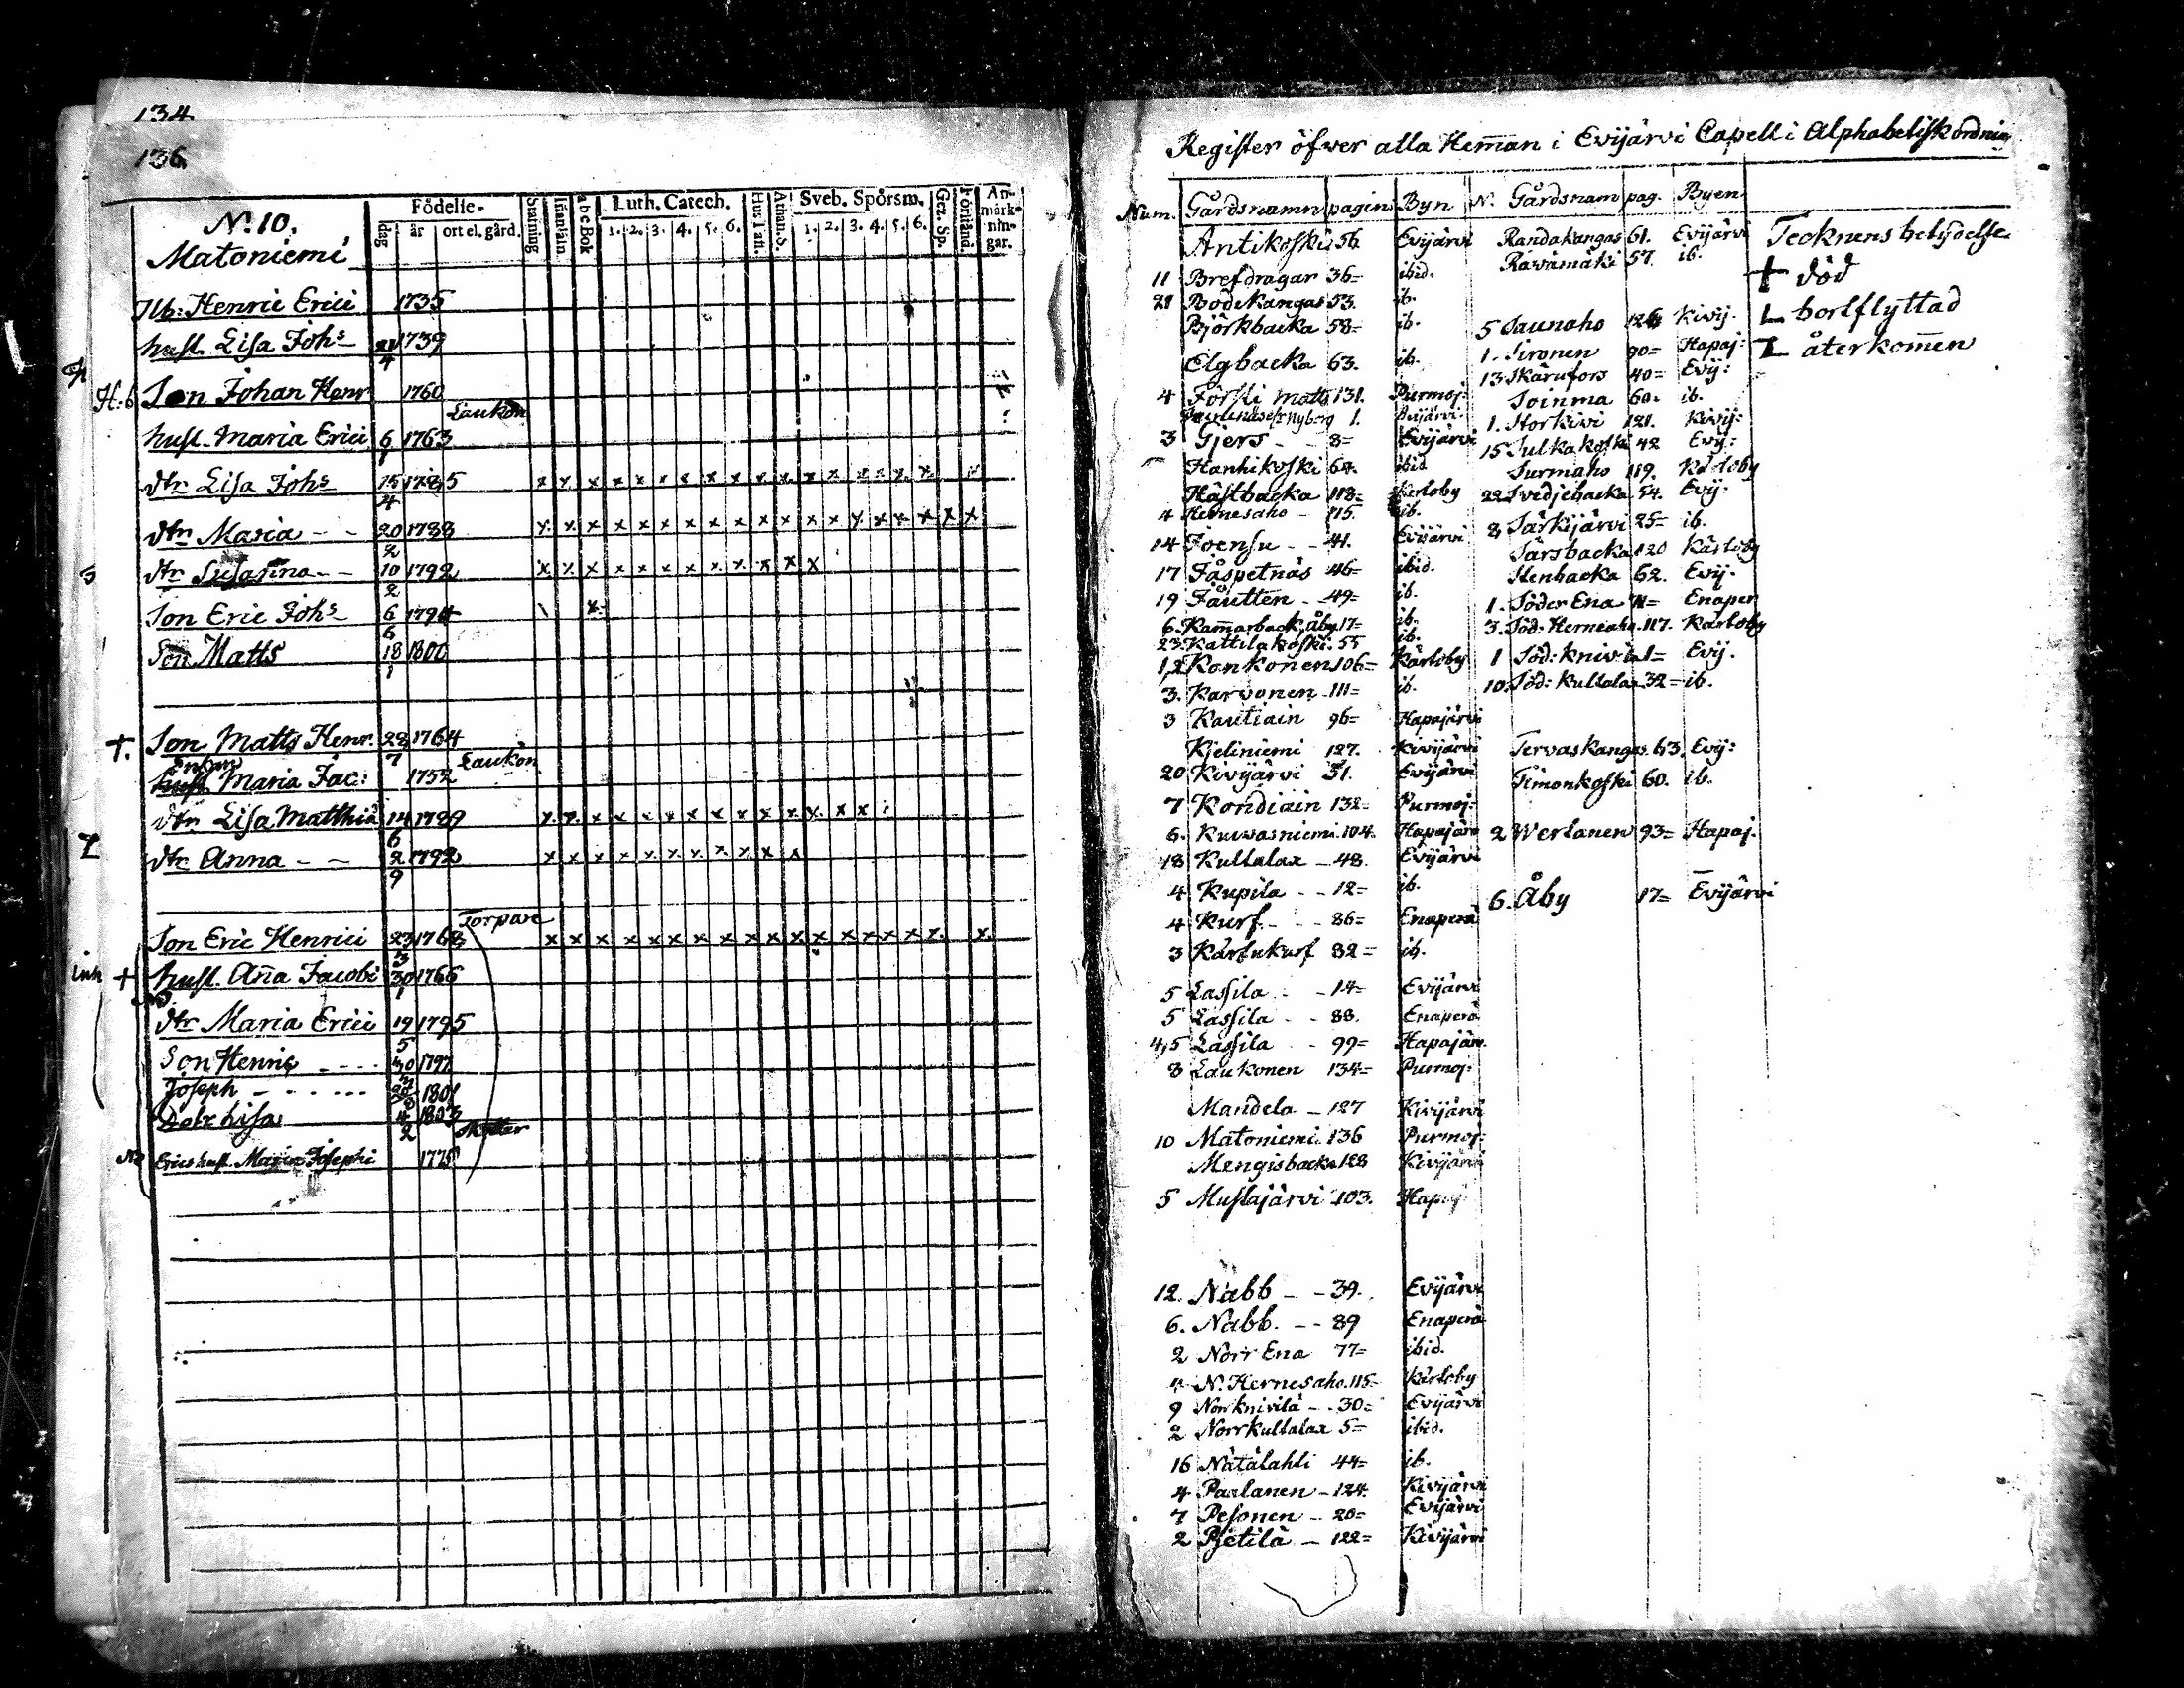 134
136
Födelse- Luth. Catech. Sveb. Spörsm. An-
märk-
nin-
gar.
dag år ort el. gård. Stafning Innanläs. abcBok 1. 2. 3. 4. 5. 6. Hus Tafl. Athan. S. 1. 2. 3. 4. 5. 6. Gez. Sp. Förstånd.
No. 10.
Matoniemi
Hb: Henric Erici 1735
hust. Lisa Johs 21/4 1739
H:b Son Johan Henr 1760
Laukon
hust. Maria Erici 6/1 1763
dtr Lisa Johs 15/4 1785 x x x x x x x x x x x x x x x x x
dtr Maria - - 20/2 1788 x x x x x x x x x x x x x x x x x x x
dtr Susanna - - 10/2 1792 x x x x x x x x x x x x
Son Eric Johs 6/6 1794 x
Son Matts 18/1 1800
†. Son Matts Henr. 28/7 1764
Enkan Laukon
hust Maria Jac: 1752
dtr Lisa Matthiæ 14/6 1789 x x x x x x x x x x x x x x
dtr Anna - - 2/9 1792 x x x x x x x x x x x
Torpare
Son Eric Henrici 23/3 1768 x x x x x x x x x x x x x x x x x x
Inh † hust. Aña Jacobi 30/1 1766
dtr Maria Erici 19/5 1795
Son Henric - - - - 30 1797
Joseph - - - - - - 1801
Dotr Lisa 1803
No Erics hust. Maria Josephi 1775
Register öfwer alla Hem̃an i Evijärvi Capell i Alphabetisk ordning
Num. Gårdsnamn pagin Byn N. Gårdsnam pag. Byen
Antikoski 56. Evijärvi Randakangas 61. Evijärvi Tecknens betydelse
11 Brefdragar 36= ibid. Räwämäki 57. ib. † död
21 Bodekangas 53. ib.
Björkbacka 58= ib. 5 Saunaho 126 Kivij. L bortflyttad
Elgbacka 63. ib. 1. Sironen 90= Hapaj: återkom̃en
13 Skärufors 40= Evij:
4 Forsti matts 131. Purmoj: Soinma 60. ib.
Nyberg 1. Evijärvi 1. Storkivi 121. Kivij:
3 Gjers - - 8= Evijärvi 15 Sulkakoski 42 Evij:
Hanhikoski 64. ibid Surmaho 119. Kärtoby
Hästbacka 118= Kertoby 22 Svedjebacka 54. Evij:
4 Hernesaho - 115. ib. 8 Särkijärvi 25= ib.
14 Joensu - - 41. Evijärvi Särsbacka 120 Kärtoby
17 Jåspetnäs 46= ibid. Stenbacka 62. Evij.
19 Jäutten - 49= ib. 1. Söder Ena Enaper
6. Kam̃arback, Åby 17= ib. 3. Söd: Hernesaho. 117. Kärtoby
23. Kattilakoski. 55 ib.
1,2 Konkonen 106= Kärtoby 1 Söd: Knivilä 1= Evij.
3. Karvonen 111= ib. 10. Söd: Kultalax 32= ib.
3 Kautiain 96= Hapajärvi
Kjeliniemi 127. Kivijärvi Tervaskangas. 63. Evij:
20 Kivijärvi 51. Evijärvi Timonkoski 60. ib.
7 Kondiain 132= Purmoj:
6. Kuuwasniemi. 104. Hapajärv 2 Wertanen 93= Hapaj.
18 Kultalax - 48. Evijärvi
4 Kupila - - 12= ib. 6. Åby 17= Evijärvi
4 Kurf. - - 86= Enaperä
3 Kärtukurf 82= ib.
5 Lassila - - 14= Evijärvi
5 Lassila - - 88. Enaperä
4,5 Lassila - 99= Hapajärv.
8 Laukonen 134= Purmoj:
Mandela - 127 Kivijärvi
10 Matoniemi. 136 Purmoj:
Mengisbacka 128 Kivijärvi
5 Mustajärvi 103. Hapaj
12. Nabb - - 39. Evijärvi
6. Nabb. - - 89 Enaperä
2 Norr Ena 77= ibid.
4 N. Hernesaho. 115= Kärtoby
9 Norrknivilä - - 30= Evijärvi
2 Norrkultalax 5= ibid.
16 Nätälahti 44= ib.
4 Paalanen - 124. Kivijärvi
7 Pesonen - 20= Evijärvi
2 Pjetilä - 122= Kivijärvi